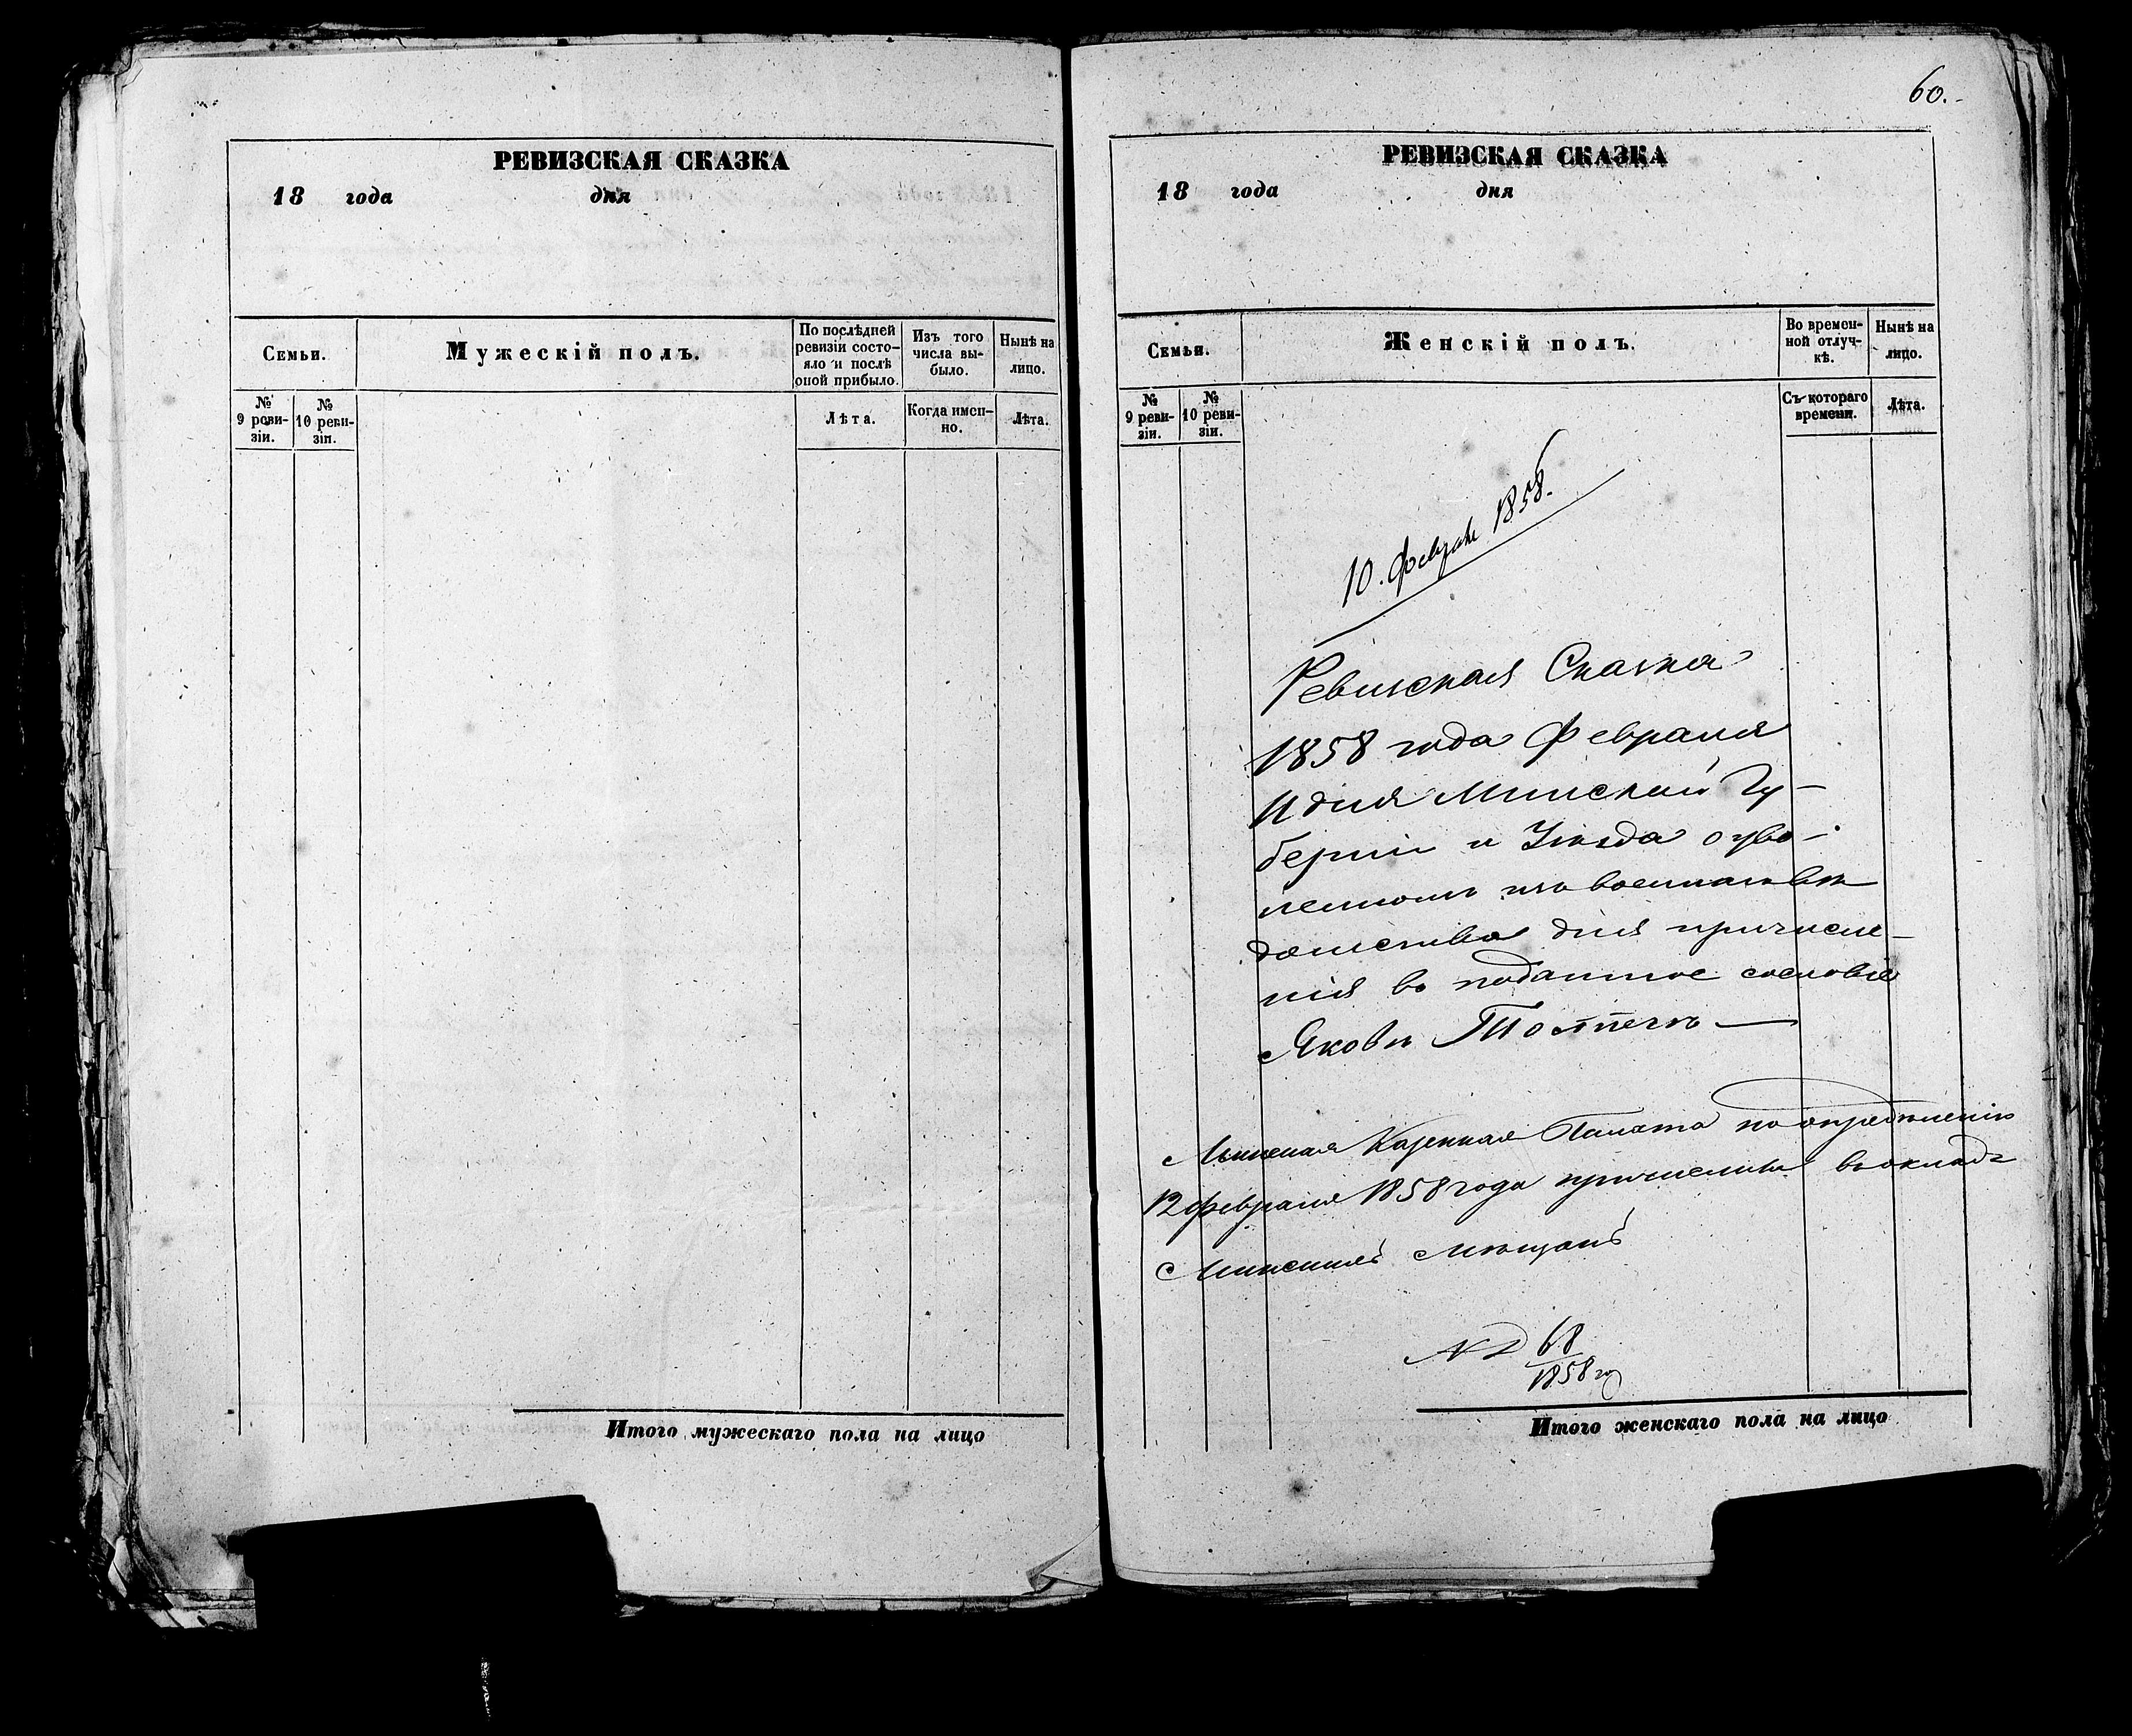 РЕВИЗСКАЯ СКАЗКА
18 года дня
Семьи.
Мужескій полъ.
По послѣдней
ревизіи состо-
яло и послѣ
оной прибыло.
Изъ того
числа вы-
было.
Нынѣ на
лицо.
№
9 реви-
зіи.
№
10 реви-
зіи.
Лѣта.
Когда имен-
но.
Лѣта.
Итого мужескаго пола на лицо
60.
РЕВИЗСКАЯ СКАЗКА
18 года дня
Семьи.
Женскій полъ.
Во времен-
ной отлуч-
кѣ.
Нынѣ на
лицо.
№
9 реви-
зіи.
№
10 реви-
зіи.
Съ котораго
времени.
Лѣта.
10. февраля 1858.
Ревизская Сказка
1858 года Февраля
11 дня Минской Гу-
берніи и Уѣзда о уво-
ленномъ изъ военнаго вѣ
домства для причисле-
нія въ податное сословіе
Яковъ
Минская Казенная Палата по опредѣленію
12 февраля 1858 года причислила въ окладъ
Минскихъ мѣщанъ
№ 68
1858 го
Итого женскаго пола на лицо